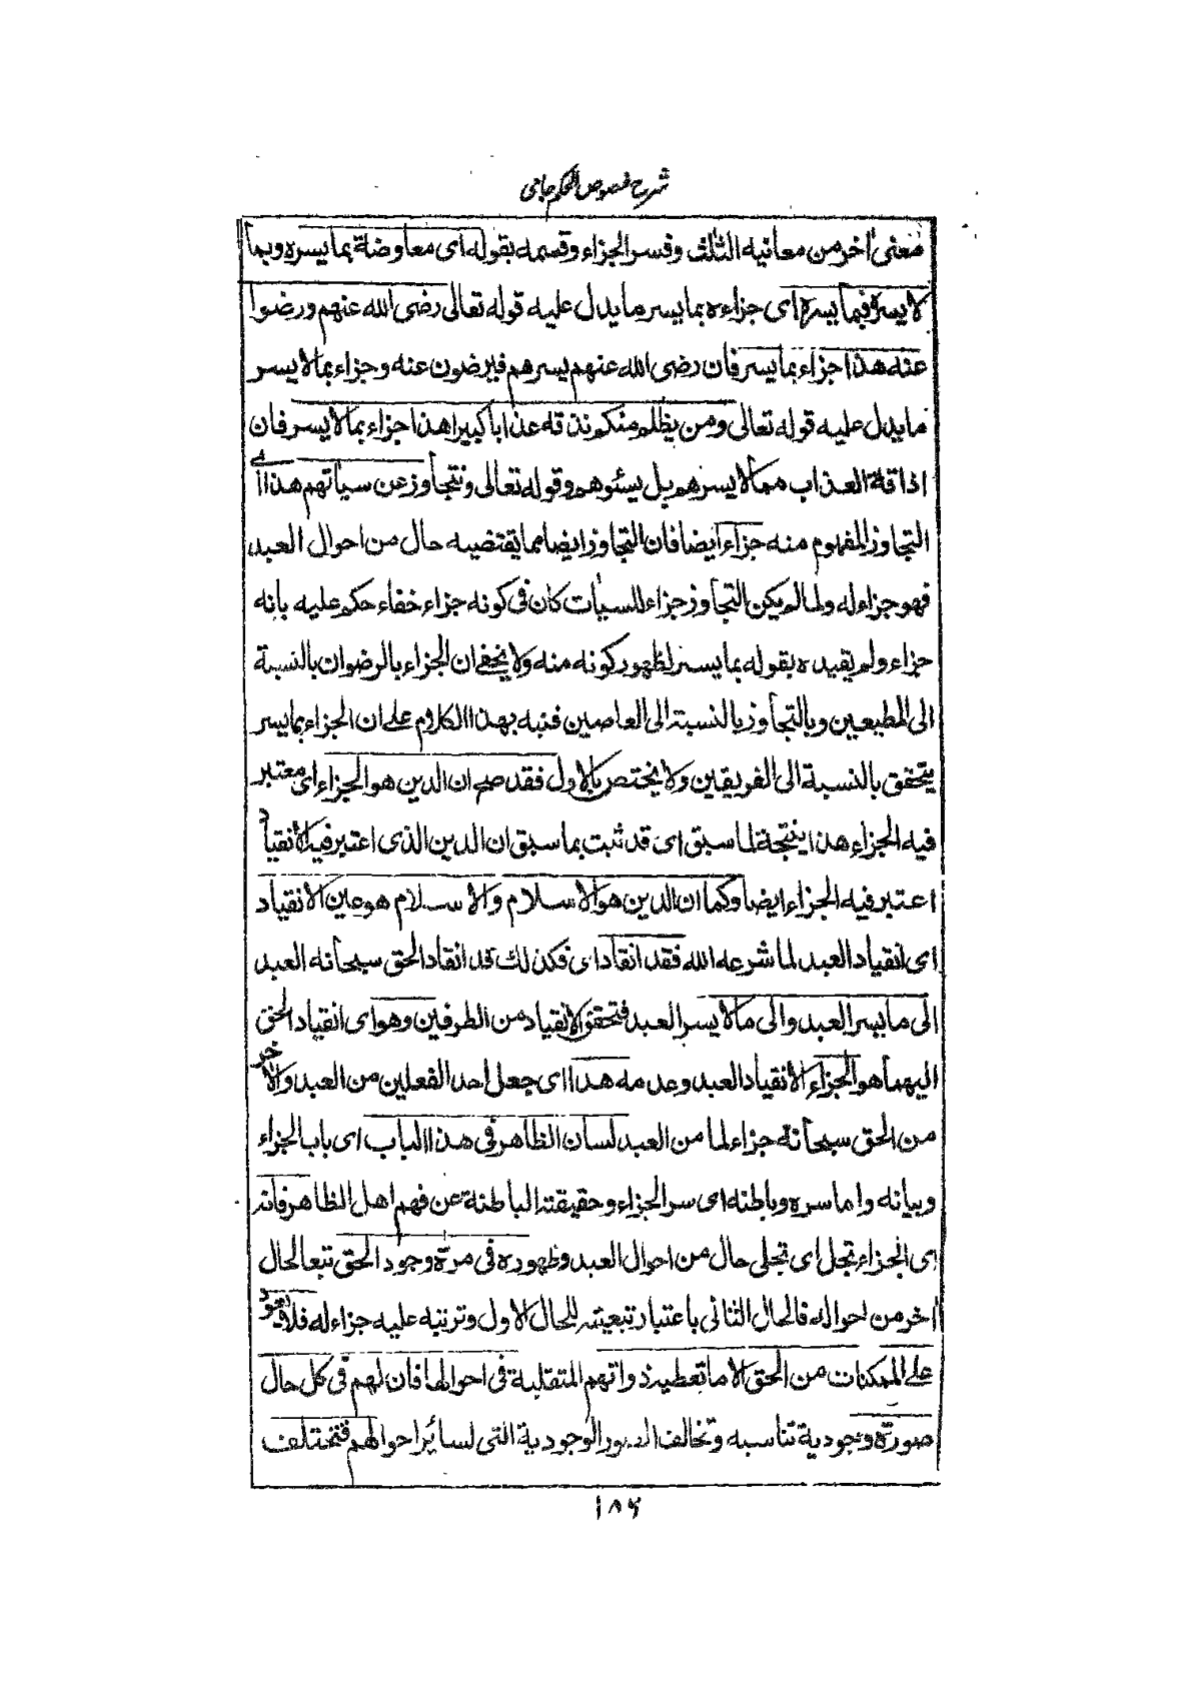 شرح فصوص الحكم جامى
معنى اخر من معانيه الثلث وفسر الجزاء وقسمه بقوله اى معاوضة بما يسره وبما
لا يسره فبما يسره اى جزاءه بما يسر ما يدل عليه قوله تعالى رضى الله عنهم ورضوا
عنه هذا جزاء بما يسر فان رضى الله عنهم يسرهم فيرضون عنه وجزاء بما لا يسر
ما يدل عليه قوله تعالى ومن يظلم منكم نذقه عذابا كبيرا هذا جزاء بما لا يسر فان
اذاقة العذاب مما لا يسرهم بل يسئوهم وقوله تعالى ونتجاوز عن سيأتهم هذا اى
التجاوز المفهوم منه جزاء ايضا فان التجاوز ايضا مما يقتضيه حال من احوال العبد
فهو جزاء له ولما لم يكن التجاوز جزاء للسيأت كان فى كونه جزاء خفاء حكم عليه بانه
جزاء ولم يقيده بقوله بما يسر لظهور كونه منه ولا يخفى ان الجزاء بالرضوان بالنسبة
الى المطيعين وبالتجاوز بالنسبة الى العاصين فنبه بهذا الكلام على ان الجزاء بما يسر
يتحقق بالنسبة الى الفريقين ولا يختص بالاول فقد صح ان الدين هو الجزاء اى معتبر
فيه الجزاء هذا ينتجة لما سبق اى قد ثبت بما سبق ان الدين الذى اعتبر فيه الانقياد
اعتبر فيه الجزاء ايضا وكما ان الدين هو الاسلام والاسلام هو عين الانقياد
اى انقياد العبد لما شرعه الله فقد انقاد اى فكذلك قد انقاد الحق سبحانه العبد
الى ما يسر العبد والى ما لا يسر العبد فتحقق الانقياد من الطرفين وهو اى انقياد الحق
اليهما هو الجزاء لانقياد العبد وعدمه هذا اى جعل احد الفعلين من العبد والاخر
من الحق سبحانه جزاء لما من العبد لسان الظاهر فى هذا الباب اى باب الجزاء
وبيانه واما سره وباطنه اى سر الجزاء وحقيقته الباطنة عن فهم اهل الظاهر فانه
اى الجزاء تجل اى تجلى حال من احوال العبد وظهوره فى مرآة وجود الحق تبعا لحال
اخر من احواله فالحال الثانى باعتبار تبعيته للحال الاول وترتبه عليه جزاء له فلا يعود
على الممكنات من الحق الا ما تعطيه ذواتهم المتقلبة فى احوالها فان لهم فى كل حال
صورة وجودية تناسبه وتخالف الصور الوجودية التى لسائر احوالهم فتختلف
۱۸۶